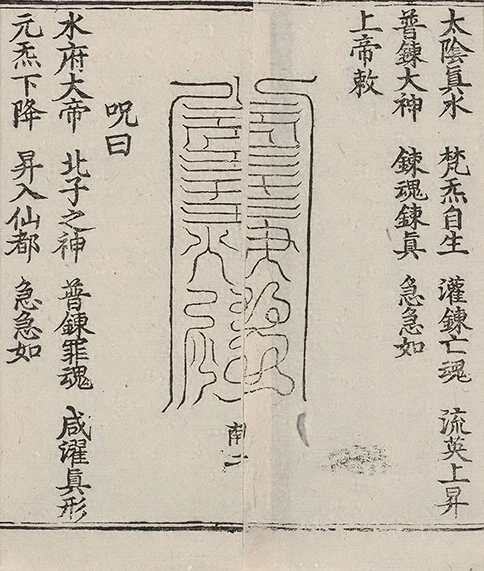 太陰眞水　梵炁自生　灌鍊亡魂　流英上昇
普鍊大神　鍊魂鍊眞　急急如
上帝敕
南二
呪曰
水府大帝　北子之神　普鍊罪魂　咸濯眞形
元炁下降　昇入仙都　急急如